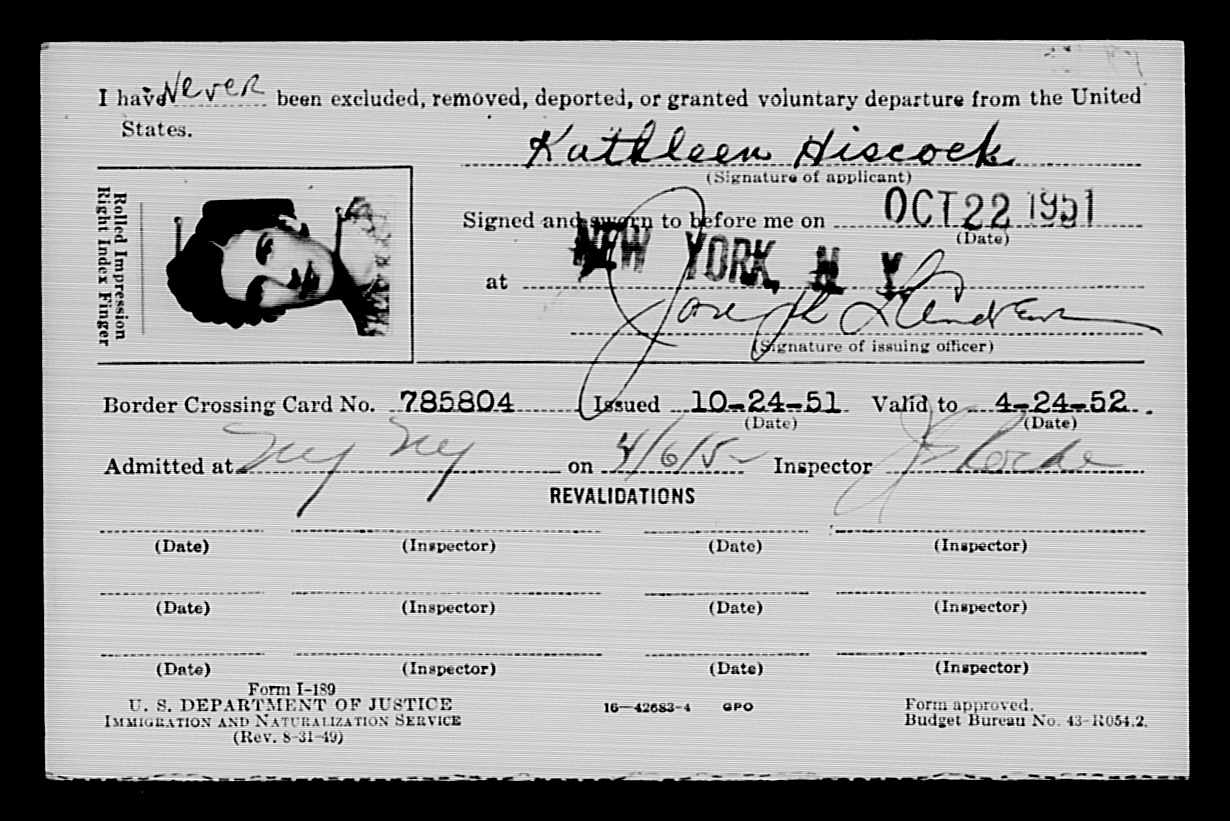 I have Never been excluded, removed, deported, or granted voluntary departure from the United
States.
Kathleen Hiscock
(Signature of applicant)
Rolled Impression
Right Index Finger
Signed and sworn to before me on OCT 22 1951
(Date)
at NEW YORK, N. Y.
Joseph
(Signature of issuing officer)
Border Crossing Card No. 785804 Issued 10-24-51 Valid to 4-24-52.
(Date) (Date)
Admitted at NY NY on 4/6/5 Inspector
REVALIDATIONS
(Date) (Inspector) (Date) (Inspector)
(Date) (Inspector) (Date) (Inspector)
(Date) (Inspector) (Date) (Inspector)
Form I-189
U. S. DEPARTMENT OF JUSTICE
IMMIGRATION AND NATURALIZATION SERVICE
(Rev. 8-31-49)
16—42683-4 GPO
Form approved.
Budget Bureau No. 43-R054.2.